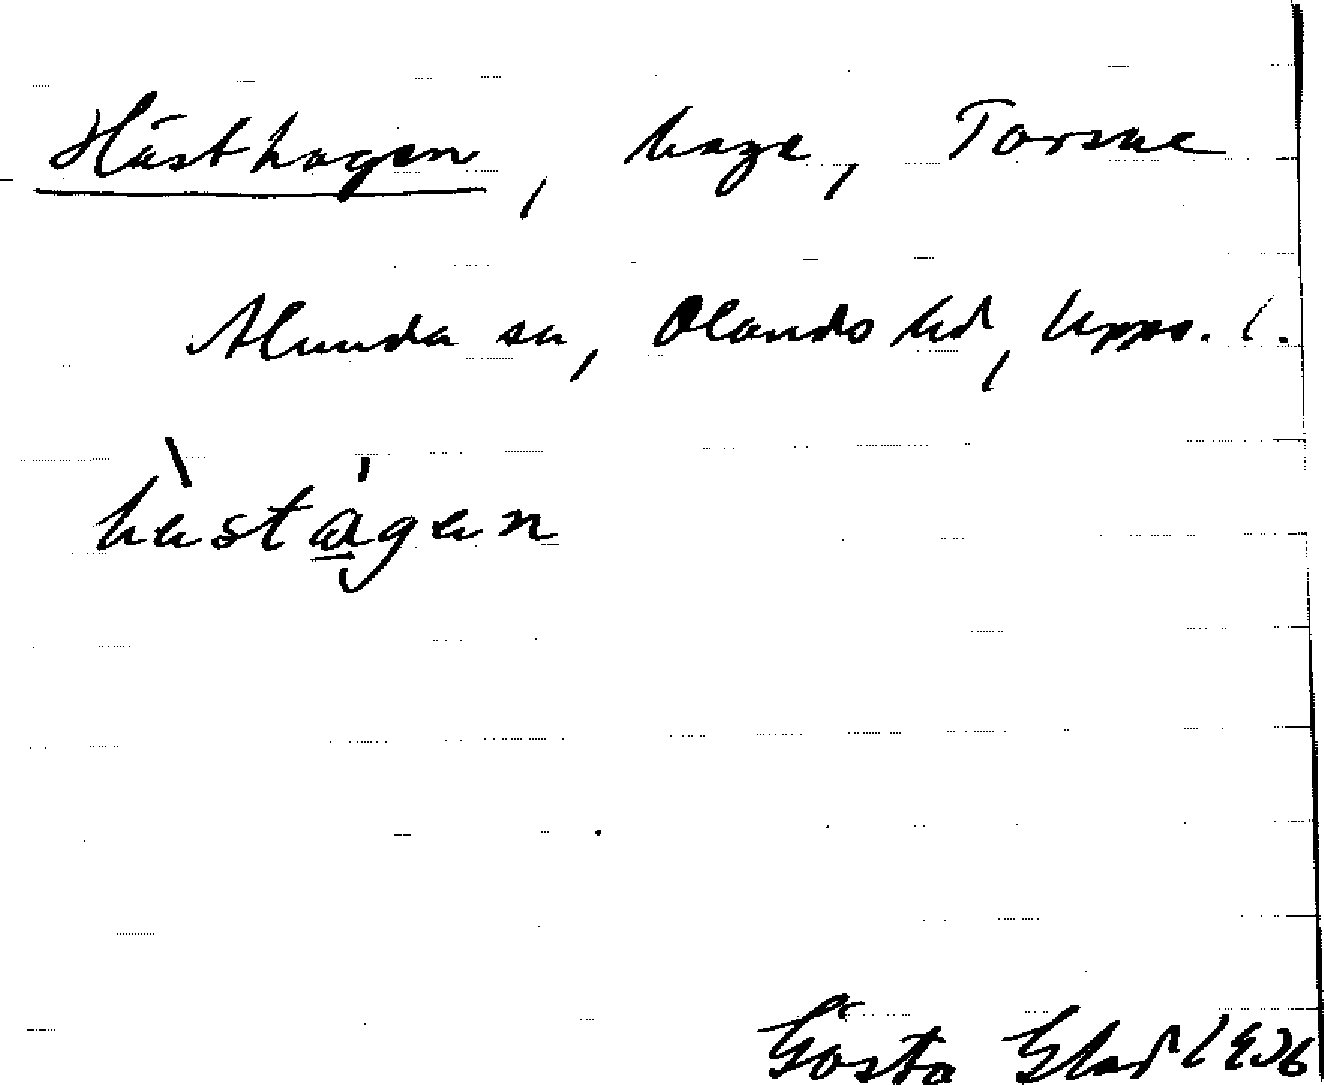 Hästhagen, hage, Torsne
Alunda sn, Olands hd, Upps. l.
hὰstagen
Gösta Elad 1936